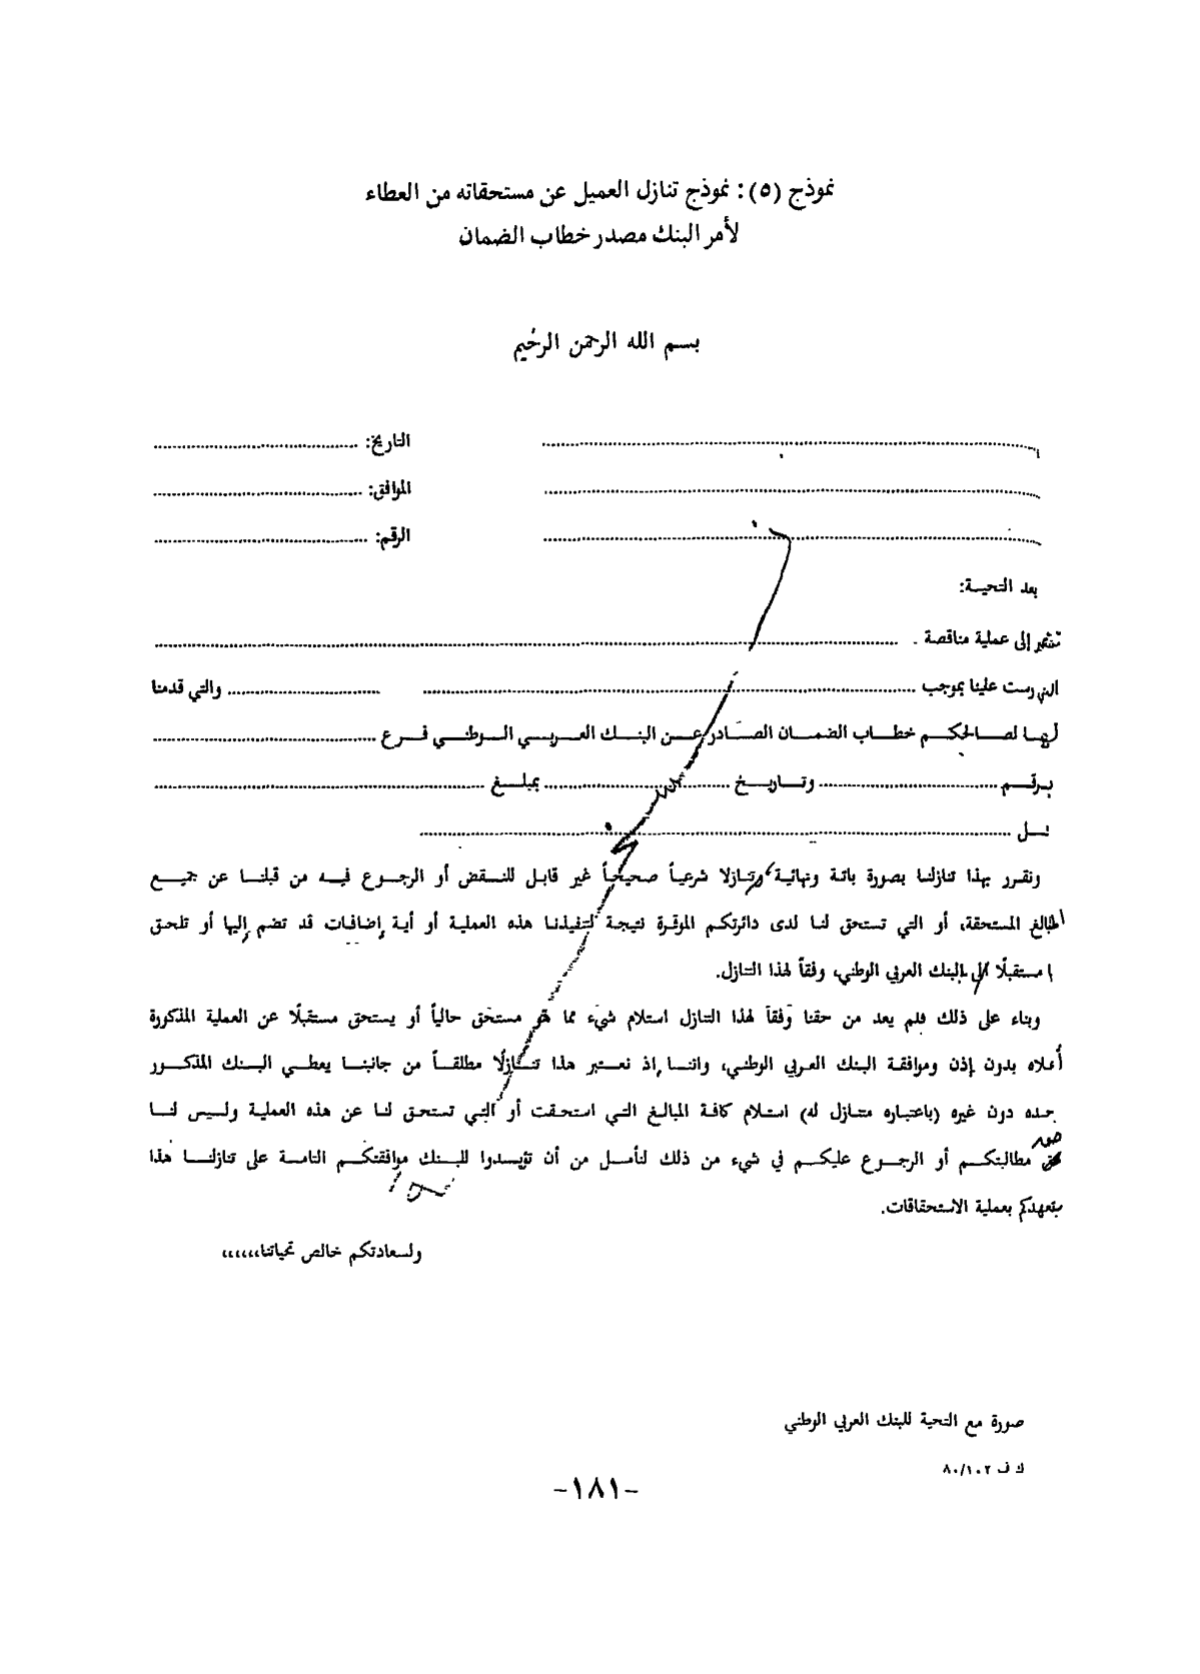 نموذج (٥): نموذج تنازل العميل عن مستحقاته من العطاء
لأمر البنك مصدر خطاب الضمان
بسم الله الرحمن الرحيم
التاريخ: ........................
الموافق: ........................
الرقم: ........................
بعد التحية:
نشير إلى عملية مناقصة ........................
التي رست علينا بموجب ........................ والتي قدمنا
لها لصالحكم خطاب الضمان الصادر عن البنك العربي الوطني فرع ........................
برقم ........................ وتاريخ ........................ بمبلغ ........................
........................
ونقرر بهذا تنازلنا بصورة باتة ونهائية وتنازلا شرعياً صحيحاً غير قابل للنقض أو الرجوع فيه من قبلنا عن جميع
المبالغ المستحقة، أو التي تستحق لنا لدى دائرتكم الموقرة نتيجة لتنفيذنا هذه العملية أو أية إضافات قد تضم إليها أو تلحق
مستقبلًا إلى البنك العربي الوطني، وفقاً لهذا التنازل.
وبناء على ذلك فلم يعد من حقنا وفقاً لهذا التنازل استلام شيء مما هو مستحق حالياً أو يستحق مستقبلًا عن العملية المذكورة
أعلاه بدون إذن وموافقة البنك العربي الوطني، واننا إذ نعتبر هذا تنازلًا مطلقاً من جانبنا يعطي البنك المذكور
وحده دون غيره (باعتباره متنازل له) استلام كافة المبالغ التي استحقت أو التي تستحق لنا عن هذه العملية وليس لنا
حق مطالبتكم أو الرجوع عليكم في شيء من ذلك لنأمل من أن تؤيدوا للبنك موافقتكم التامة على تنازلنا هذا
بتعهدكم بعملية الاستحقاقات.
ولسعادتكم خالص تحياتنا،،،،،،
صورة مع التحية للبنك العربي الوطني
ك ف ٨٠/١٠٢
-١٨١-